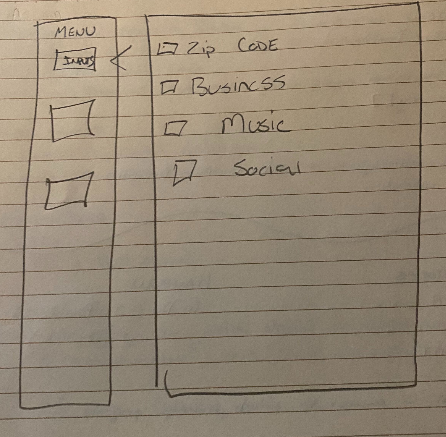 MENU
Zip CODE
Business
Music
Social